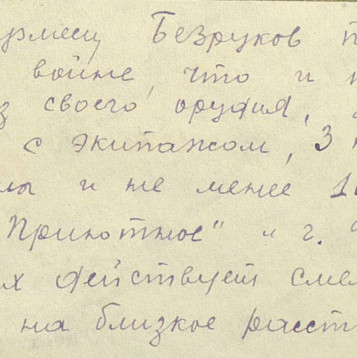 Безруков
войне, что и
своего орудия,
с экипажом, 3
и не менее
Приютное" и г.
действует
на близкое расст